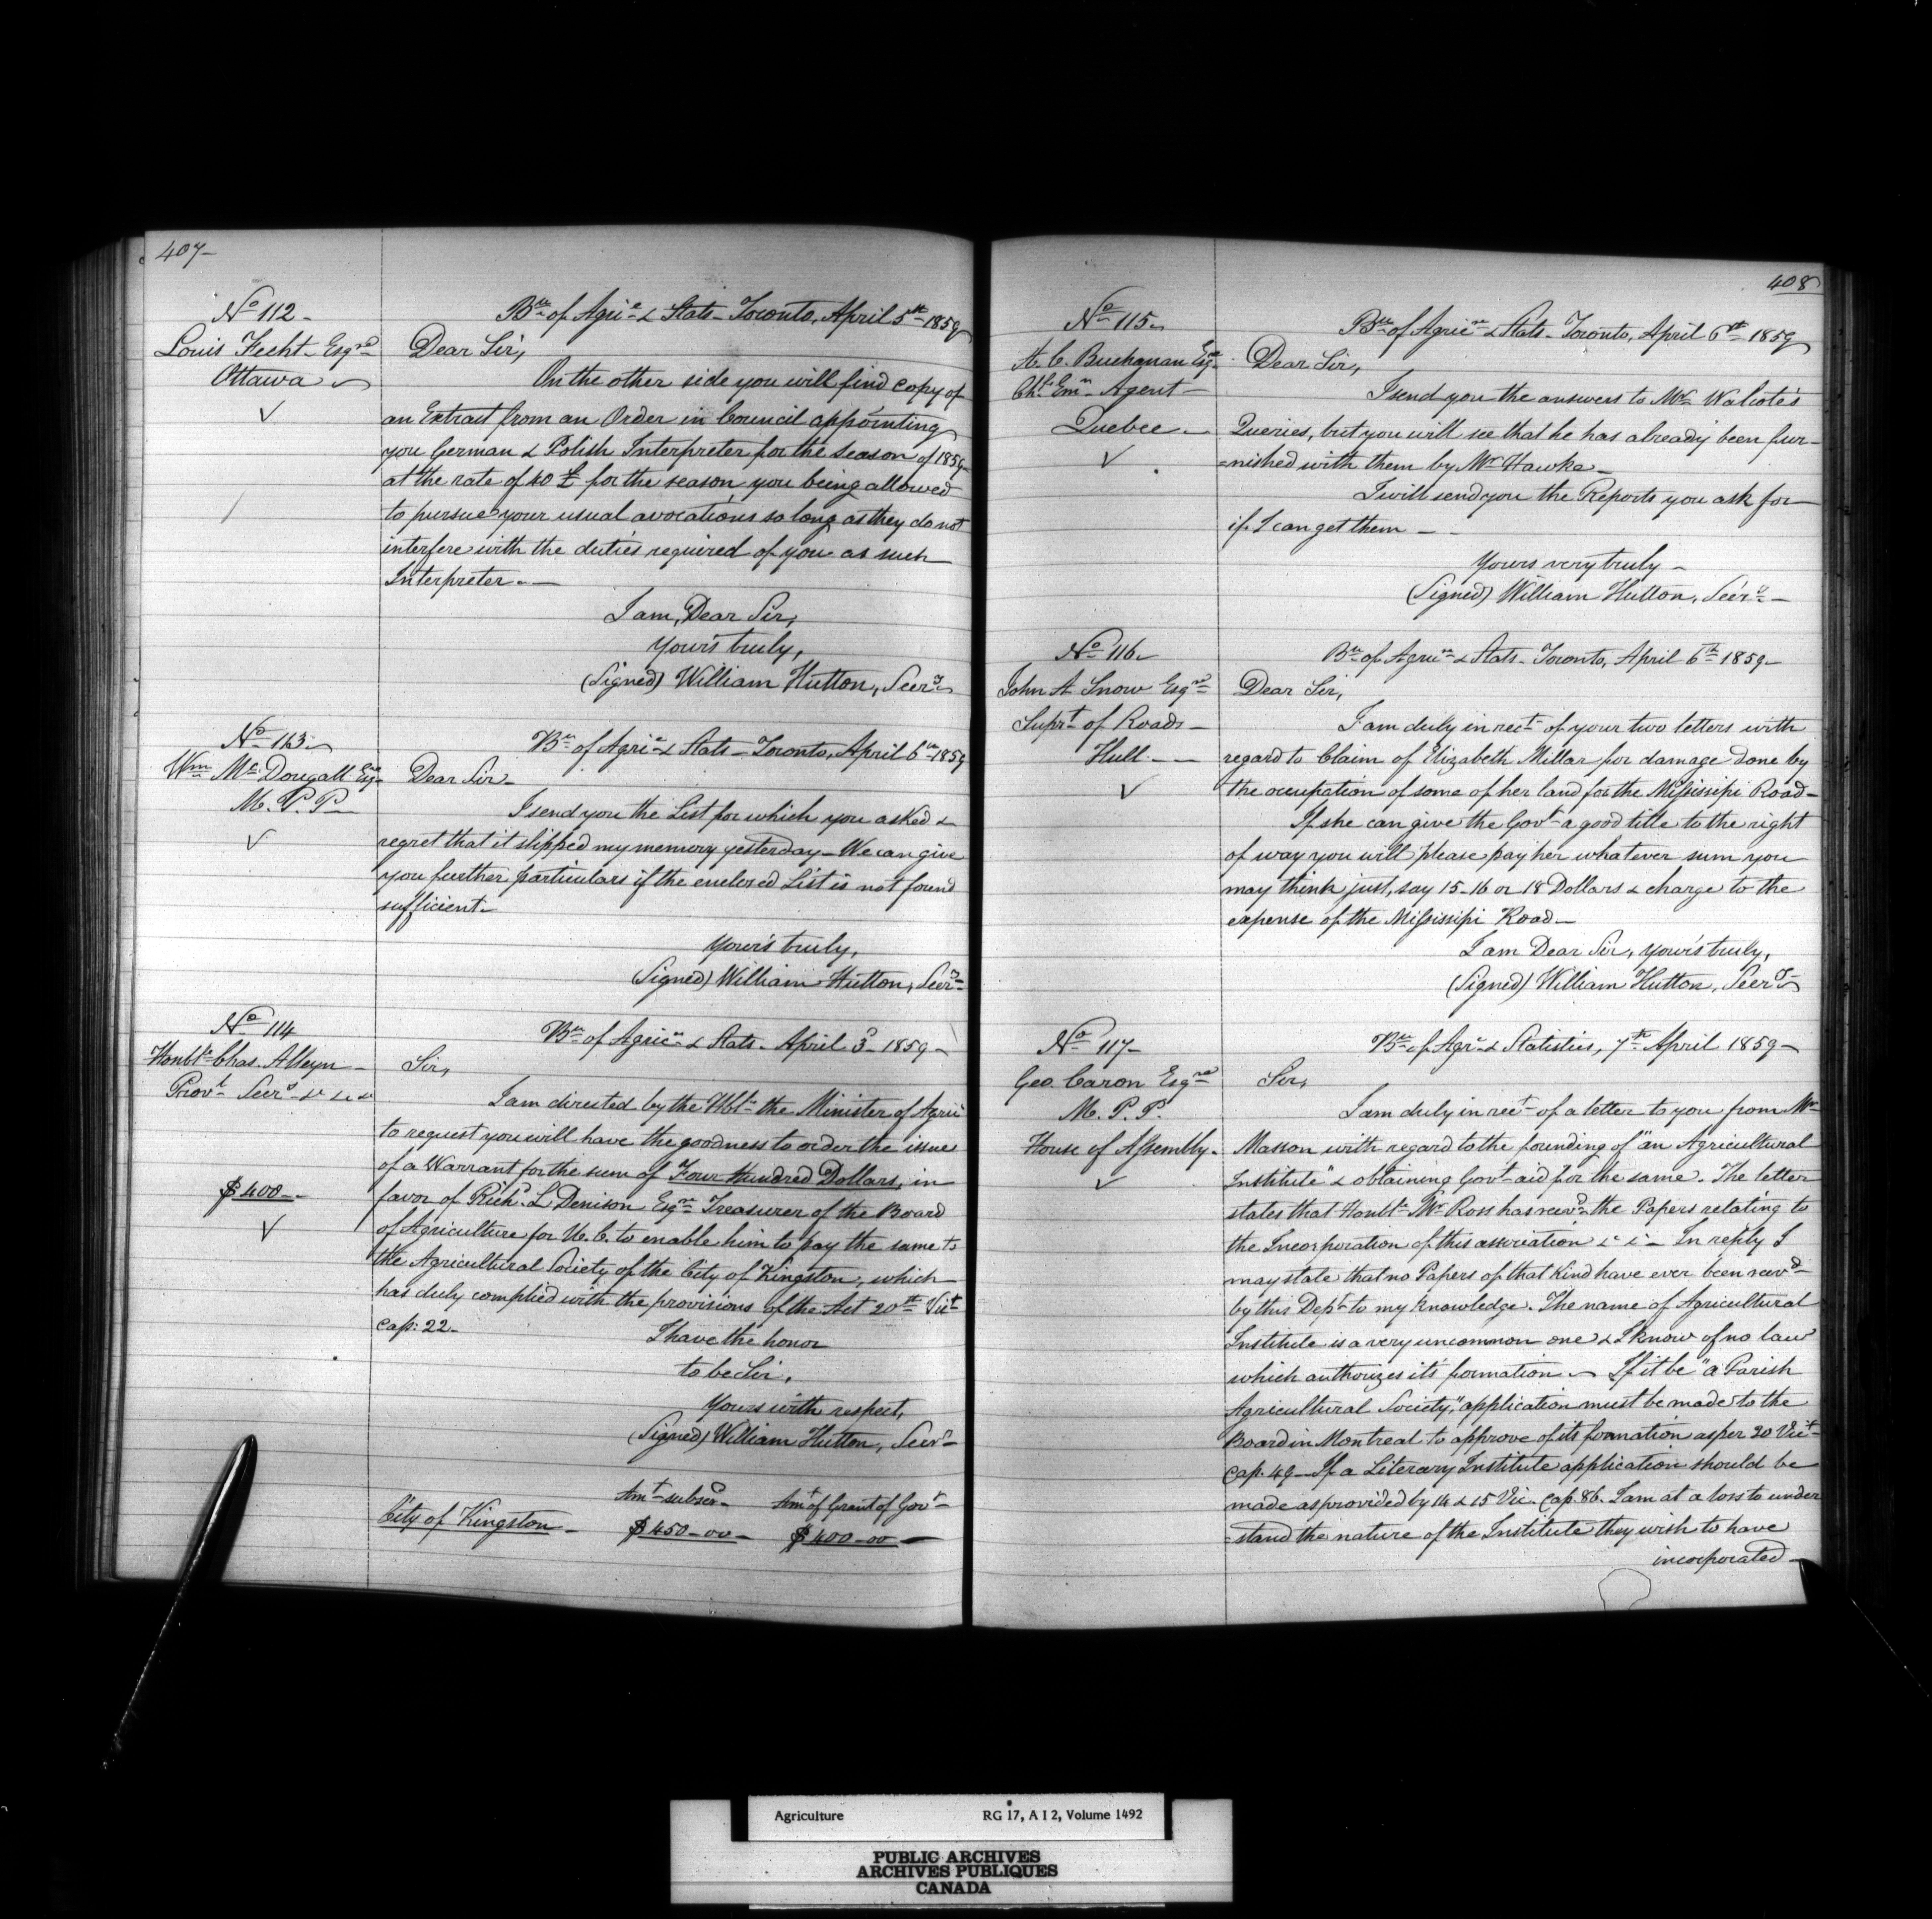 407-
No 112-
Louis Fecht- Esqre
Ottawa
Bau of Agrie & Stats- Toronto, April 5th 1859
Dear Sir,
On the other side you will find copy of
an Extract from an Order in Council appointing
you German & Polish Interpreter for the Season of 1859-
at the rate of 40 £ for the season, you being allowed
to pursue your usual avocations so long as they do not
interfere with the duties required of you as such
Interpreter.-
I am, Dear Sir,
Yours truly,
(Signed) William Hutton, Secry
No 113
Wm McDougall Esqre
M. P. P-
Bau of Agrie & Stats- Toronto, April 6th 1859
Dear Sir-
I send you the List for which you asked &
regret that it slipped my memory yesterday- We can give
you further particulars if the enclosed List is not found
sufficient-
Yours truly,
(Signed) William Hutton, Secry
No 114
Honble Chas. Alleyn-
Provl Secry &c &c &c
$400--
Bau of Agricre & Stats- April 3d 1859-
Sir,
I am directed by the Hble the Minister of Agric
to request you will have the goodness to order the issue
of a Warrant for the sum of Four Hundred Dollars, in
favor of Richd L Denison Esqre Treasurer of the Board
of Agriculture for U. C. to enable him to pay the same to
the Agricultural Society of the City of Kingston, which
has duly complied with the provisions of the Act 20th Vict
Cap: 22-
I have the honor
to be Sir,
Yours with respect,
(Signed) William Hutton, Secry
Amt subscd- Amt of Grant of Govt-
City of Kingston- $450-00- $400-00-
408
No 115
A. C. Buchanan Esqre
Chf Emn Agent-
Quebec-
Bau of Agricre & Stats- Toronto, April 6th 1859
Dear Sir,
I send you the answers to Mr Walcote's
Queries, but you will see that he has already been fur-
=nished with them by Mr Hawke-
I will send you the Reports you ask for
if I can get them--
Yours very truly-
(Signed) William Hutton, Secry-
No 116
John A Snow Esqre
Suprt of Roads-
Hull--
Bau of Agricre & Stats- Toronto, April 6th 1859-
Dear Sir,
I am duly in rect of your two letters with
regard to Claim of Elizabeth Millar for damage done by
the occupation of some of her land for the Mississipi Road-
If she can give the Govt a good title to the right
of way you will please pay her whatever sum you
may think just, say 15-16 or 18 Dollars & charge to the
expense of the Mississipi Road-
I am Dear Sir, yours truly,
(Signed) William Hutton, Secry
No 117-
Geo. Caron Esqre
M. P. P.
House of Assembly-
Bau of Agre & Statistics, 7th April 1859-
Sir,
I am duly in rect of a letter to you from Mr
Masson with regard to the founding of "an Agricultural
Institute" & obtaining Govt aid for the same. The letter
states that Honble Mr Ross has recvd the Papers relating to
the Incorporation of this association &c &c- In reply I
may state that no Papers of that Kind have ever been recvd
by this Dept to my knowledge. The name of Agricultural
Institute is a very uncommon one & I know of no law
which authorizes its formation- If it be "a Parish
Agricultural Society," application must be made to the
Board in Montreal to approve of its formation as per 20 Vict
Cap. 49- If a Literary Institute application should be
made as provided by 14 & 15 Vic. Cap. 86. I am at a loss to under
=stand the nature of the Institute they wish to have
incorporated-
Agriculture RG 17, A I 2, Volume 1492
PUBLIC ARCHIVES
ARCHIVES PUBLIQUES
CANADA